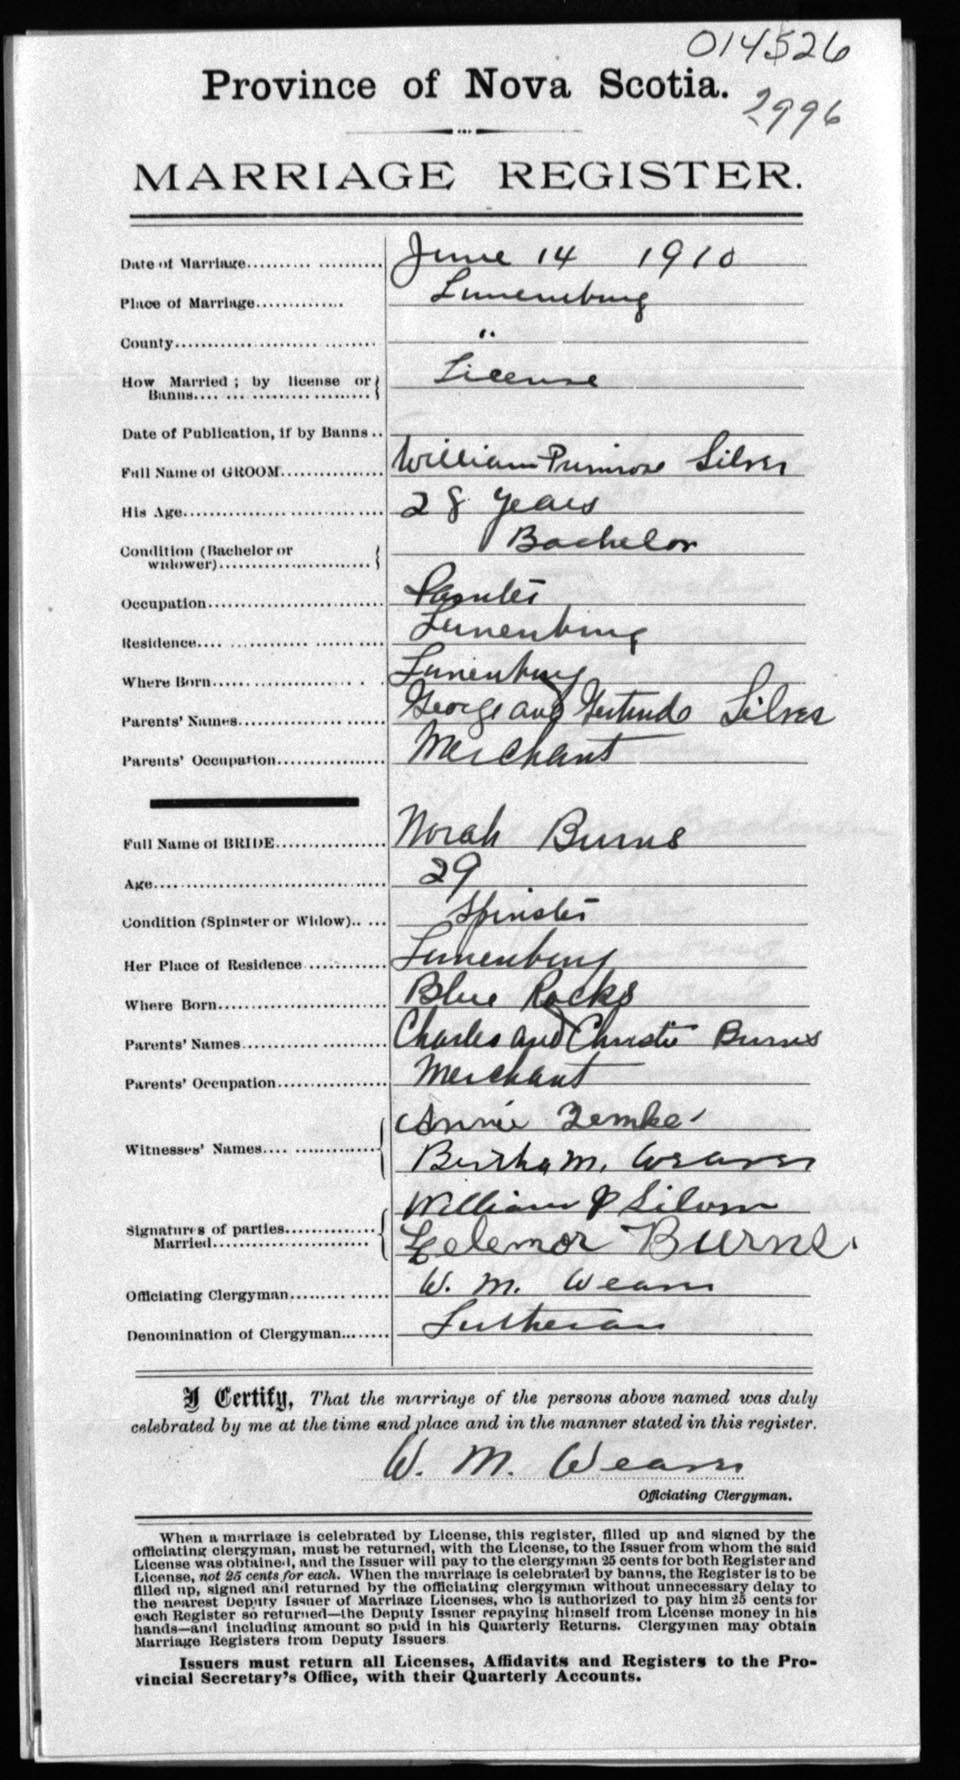 014526
Province of Nova Scotia.
2996
MARRIAGE REGISTER.
Date of Marriage.......... .................. June 14 1910
Place of Marriage.............. Lunenburg
County..................... ........ "
How Married ; by license or
Banns.... ... ........................ License
Date of Publication, if by Banns ..
Full Name of GROOM................ William Primrose Silver
His Age................................ 28 years
Condition (Bachelor or
widower)........................ Bachelor
Occupation............................ Painter
Residence.... ............... ........... Lunenburg
Where Born.................... . Lunenburg
Parents' Names....................... George and Gertrude Silver
Parents' Occupation.................. Merchant
Full Name of BRIDE.................. Norah Burns
Age..................................... 29
Condition (Spinster or Widow).. .... Spinster
Her Place of Residence ............. Lunenburg
Where Born........................... Blue Rocks
Parents' Names....................... Charles and Christie Burns
Parents' Occupation.................. Merchant
Annie Zemke
Witnesses' Names.... ...............
Bertha M. Weaver
William P Silver
Signatures of parties..............
Married........................
Burns.
Officiating Clergyman............... W. M. Weaver
Denomination of Clergyman........ Lutheran
I Certify, That the marriage of the persons above named was duly
celebrated by me at the time and place and in the manner stated in this register.
W. M. Weaver
Officiating Clergyman.
When a marriage is celebrated by License, this register, filled up and signed by the
officiating clergyman, must be returned, with the License, to the Issuer from whom the said
License was obtained, and the Issuer will pay to the clergyman 25 cents for both Register and
License, not 25 cents for each. When the marriage is celebrated by banns, the Register is to be
filled up, signed and returned by the officiating clergyman without unnecessary delay to
the nearest Deputy Issuer of Marriage Licenses, who is authorized to pay him 25 cents for
each Register so returned—the Deputy Issuer repaying himself from License money in his
hands—and including amount so paid in his Quarterly Returns. Clergymen may obtain
Marriage Registers from Deputy Issuers
Issuers must return all Licenses, Affidavits and Registers to the Pro-
vincial Secretary's Office, with their Quarterly Accounts.